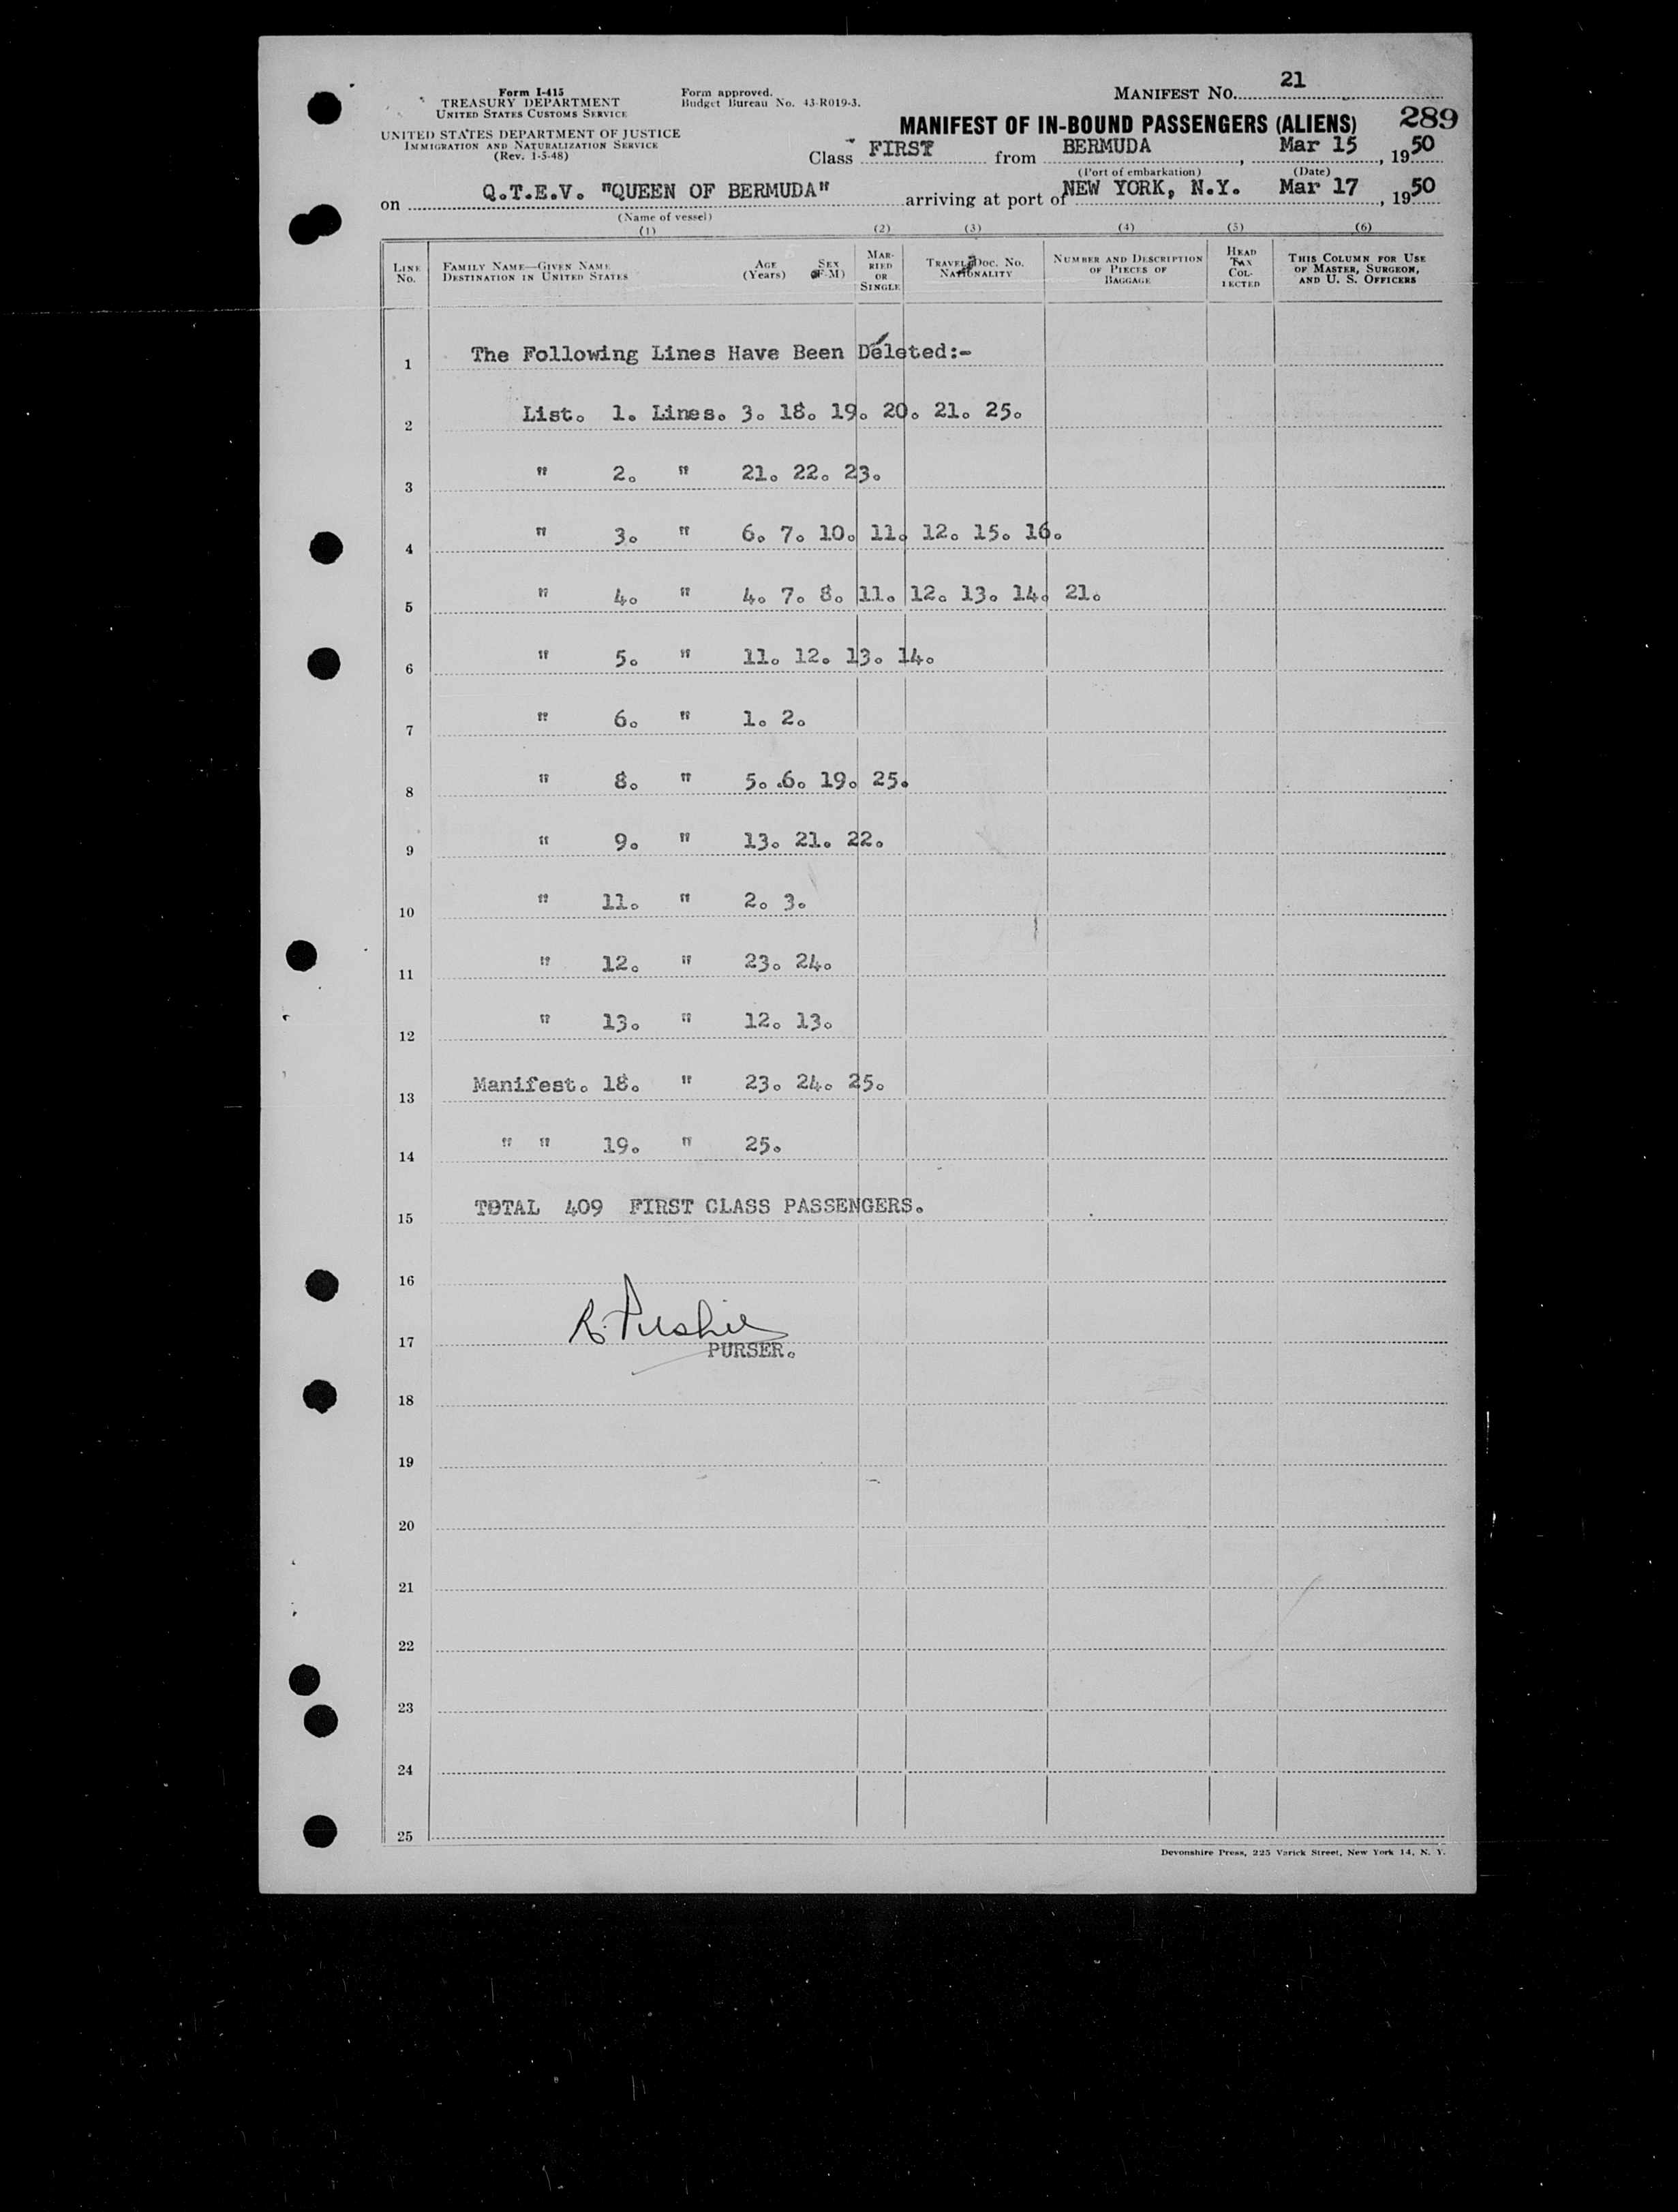 Form I-415
TREASURY DEPARTMENT
UNITED STATES CUSTOMS SERVICE
UNITED STATES DEPARTMENT OF JUSTICE
IMMIGRATION AND NATURALIZATION SERVICE
(Rev. 1-5-48)
Form approved.
Budget Bureau No. 43-R019-3.
MANIFEST NO. 21
289
MANIFEST OF IN-BOUND PASSENGERS (ALIENS)
Class FIRST from BERMUDA, Mar 15, 1950
(Port of embarkation) (Date)
on Q.T.E.V. "QUEEN OF BERMUDA" arriving at port of NEW YORK, N.Y. Mar 17, 1950
(Name of vessel)
(1) (2) (3) (4) (5) (6)
LINE NO.
FAMILY NAME—GIVEN NAME
DESTINATION IN UNITED STATES
AGE (Years)
SEX (F-M)
MARRIED OR SINGLE
TRAVEL DOC. NO.
NATIONALITY
NUMBER AND DESCRIPTION OF PIECES OF BAGGAGE
HEAD TAX COLLECTED
THIS COLUMN FOR USE OF MASTER, SURGEON, AND U. S. OFFICERS
1 The Following Lines Have Been Deleted:-
2 List. 1. Lines. 3. 18. 19. 20. 21. 25.
3 " 2. " 21. 22. 23.
4 " 3. " 6. 7. 10. 11. 12. 15. 16.
5 " 4. " 4. 7. 8. 11. 12. 13. 14. 21.
6 " 5. " 11. 12. 13. 14.
7 " 6. " 1. 2.
8 " 8. " 5. 6. 19. 25.
9 " 9. " 13. 21. 22.
10 " 11. " 2. 3.
11 " 12. " 23. 24.
12 " 13. " 12. 13.
13 Manifest. 18. " 23. 24. 25.
14 " " 19. " 25.
15 TOTAL 409 FIRST CLASS PASSENGERS.
16
17 R.
PURSER.
18
19
20
21
22
23
24
25
Devonshire Press, 225 Varick Street, New York 14, N. Y.